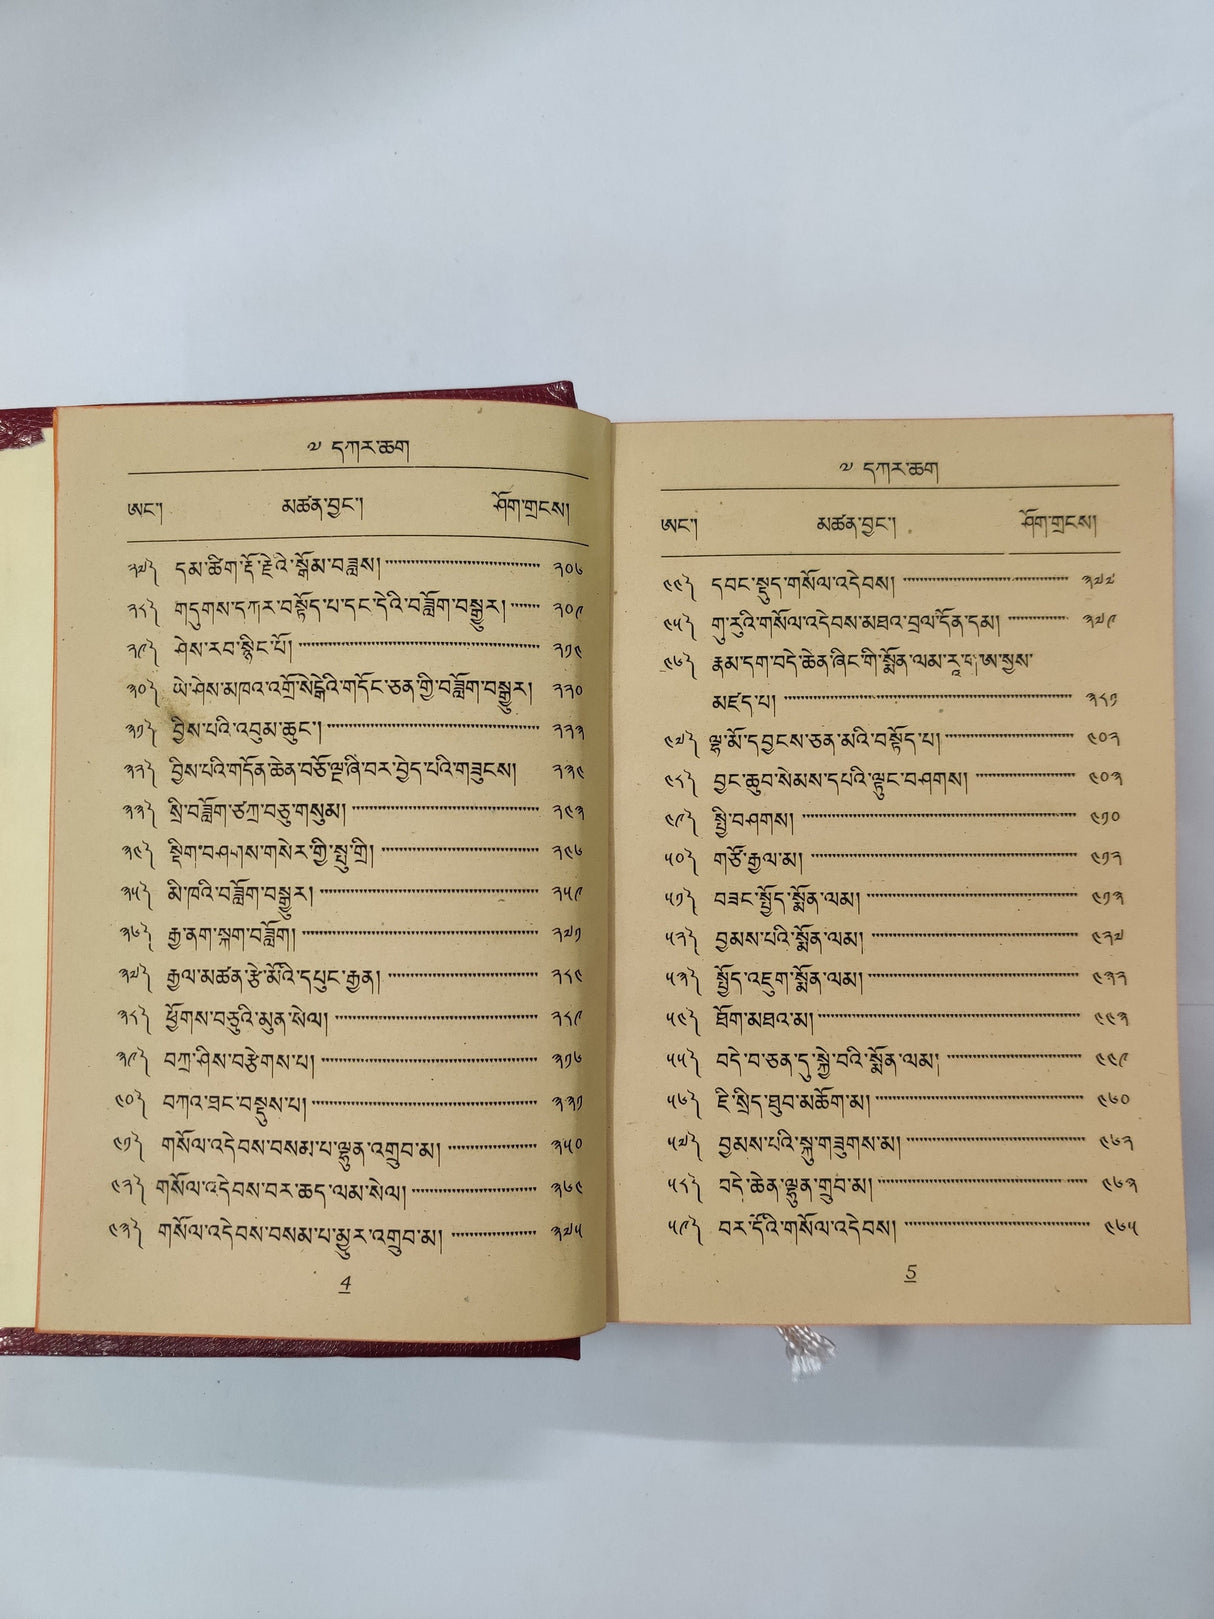 ༧ དཀར་ཆག
ཨང་། མཚན་བྱང་། ཤོག་གྲངས།
༢༧༽ དམ་ཚིག་རྡོ་རྗེའི་སྒོམ་བཟླས། ༢༠༦
༢༨༽ གདུགས་དཀར་བསྟོད་པ་དང་དེའི་བཟློག་བསྒྱུར། ༢༠༩
༢༩༽ ཤེས་རབ་སྙིང་པོ། ༢༡༤
༣༠༽ ཡེ་ཤེས་མཁའ་འགྲོ་སེངྒེའི་གདོང་ཅན་གྱི་བཟློག་བསྒྱུར། ༢༢༠
༣༡༽ བྱིས་པའི་འབུམ་ཆུང་། ༢༢༣
༣༢༽ བྱིས་པའི་གདོན་ཆེན་བཅོ་ལྔ་ཞི་བར་བྱེད་པའི་གཟུངས། ༢༣༤
༣༣༽ སྲི་བཟློག་ཙཀྲ་བཅུ་གསུམ། ༢༤༣
༣༤༽ སྡིག་བཤགས་གསེར་གྱི་སྤུ་གྲི། ༢༤༦
༣༥༽ མི་ཁའི་བཟློག་བསྒྱུར། ༢༥༩
༣༦༽ རྒྱ་ནག་སྐག་བཟློག། ༢༧༡
༣༧༽ རྒྱལ་མཚན་རྩེ་མོའི་དཔུང་རྒྱན། ༢༨༤
༣༨༽ ཕྱོགས་བཅུའི་མུན་སེལ། ༢༨༩
༣༩༽ བཀྲ་ཤིས་བརྩེགས་པ། ༣༡༦
༤༠༽ བཀའ་ཐང་བསྡུས་པ། ༣༣༡
༤༡༽ གསོལ་འདེབས་བསམ་པ་ལྷུན་འགྲུབ་མ། ༣༥༠
༤༢༽ གསོལ་འདེབས་བར་ཆད་ལམ་སེལ། ༣༦༤
༤༣༽ གསོལ་འདེབས་བསམ་པ་མྱུར་འགྲུབ་མ། ༣༧༥
4
༧ དཀར་ཆག
ཨང་། མཚན་བྱང་། ཤོག་གྲངས།
༤༤༽ དབང་སྡུད་གསོལ་འདེབས། ༣༧༧
༤༥༽ གུ་རུའི་གསོལ་འདེབས་མཐའ་བྲལ་དོན་དམ། ༣༧༩
༤༦༽ རྣམ་དག་བདེ་ཆེན་ཞིང་གི་སྨོན་ལམ་རཱ་ག་ཨ་སྱས་
མཛད་པ། ༣༨༡
༤༧༽ ལྷ་མོ་དབྱངས་ཅན་མའི་བསྟོད་པ། ༤༠༢
༤༨༽ བྱང་ཆུབ་སེམས་དཔའི་ལྟུང་བཤགས། ༤༠༣
༤༩༽ སྤྱི་བཤགས། ༤༡༠
༥༠༽ གཙོ་རྒྱལ་མ། ༤༡༢
༥༡༽ བཟང་སྤྱོད་སྨོན་ལམ། ༤༡༣
༥༢༽ བྱམས་པའི་སྨོན་ལམ། ༤༢༧
༥༣༽ སྤྱོད་འཇུག་སྨོན་ལམ། ༤༣༢
༥༤༽ ཐོག་མཐའ་མ། ༤༤༣
༥༥༽ བདེ་བ་ཅན་དུ་སྐྱེ་བའི་སྨོན་ལམ། ༤༤༩
༥༦༽ ཇི་སྲིད་ཐུབ་མཆོག་མ། ༤༦༠
༥༧༽ བྱམས་པའི་སྐུ་གཟུགས་མ། ༤༦༢
༥༨༽ བདེ་ཆེན་ལྷུན་གྲུབ་མ། ༤༦༣
༥༩༽ བར་དོའི་གསོལ་འདེབས། ༤༦༥
5